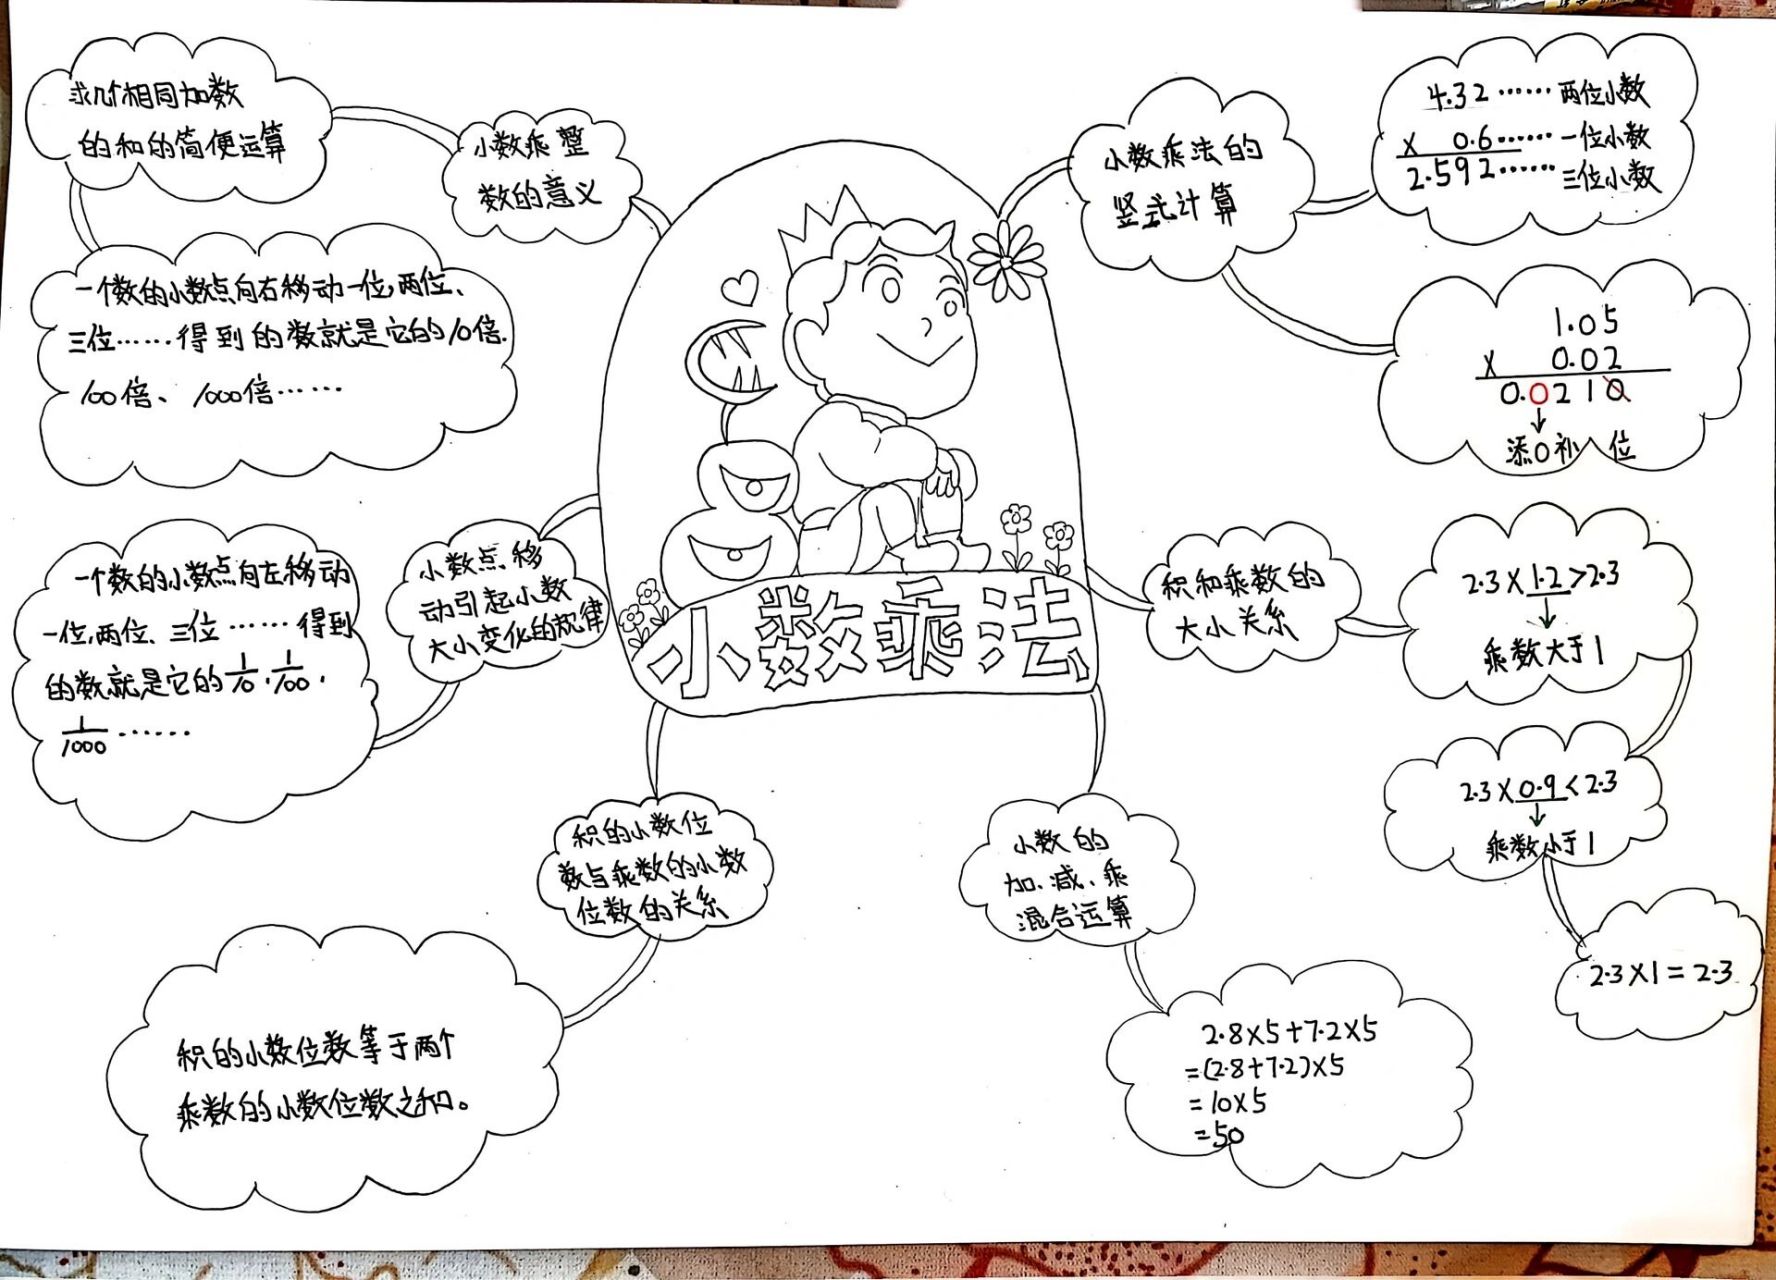 小数乘法
小数乘整
数的意义
求几个相同加数
的和的简便运算
一个数的小数点向右移动一位,两位、
三位……得到的数就是它的10倍.
100倍、1000倍……
小数点移
动引起小数
大小变化的规律
一个数的小数点向左移动
一位,两位、三位……得到
的数就是它的1/10.1/100.
1/1000……
积的小数位
数与乘数的小数
位数的关系
积的小数位数等于两个
乘数的小数位数之和。
小数乘法的
竖式计算
4.32……两位小数
× 0.6……一位小数
2.592……三位小数
1.05
× 0.02
0.0210
↓
添0补位
积和乘数的
大小关系
2.3×1.2>2.3
↓
乘数大于1
2.3×0.9<2.3
↓
乘数小于1
2.3×1=2.3
小数的
加、减、乘
混合运算
2.8×5+7.2×5
=(2.8+7.2)×5
=10×5
=50